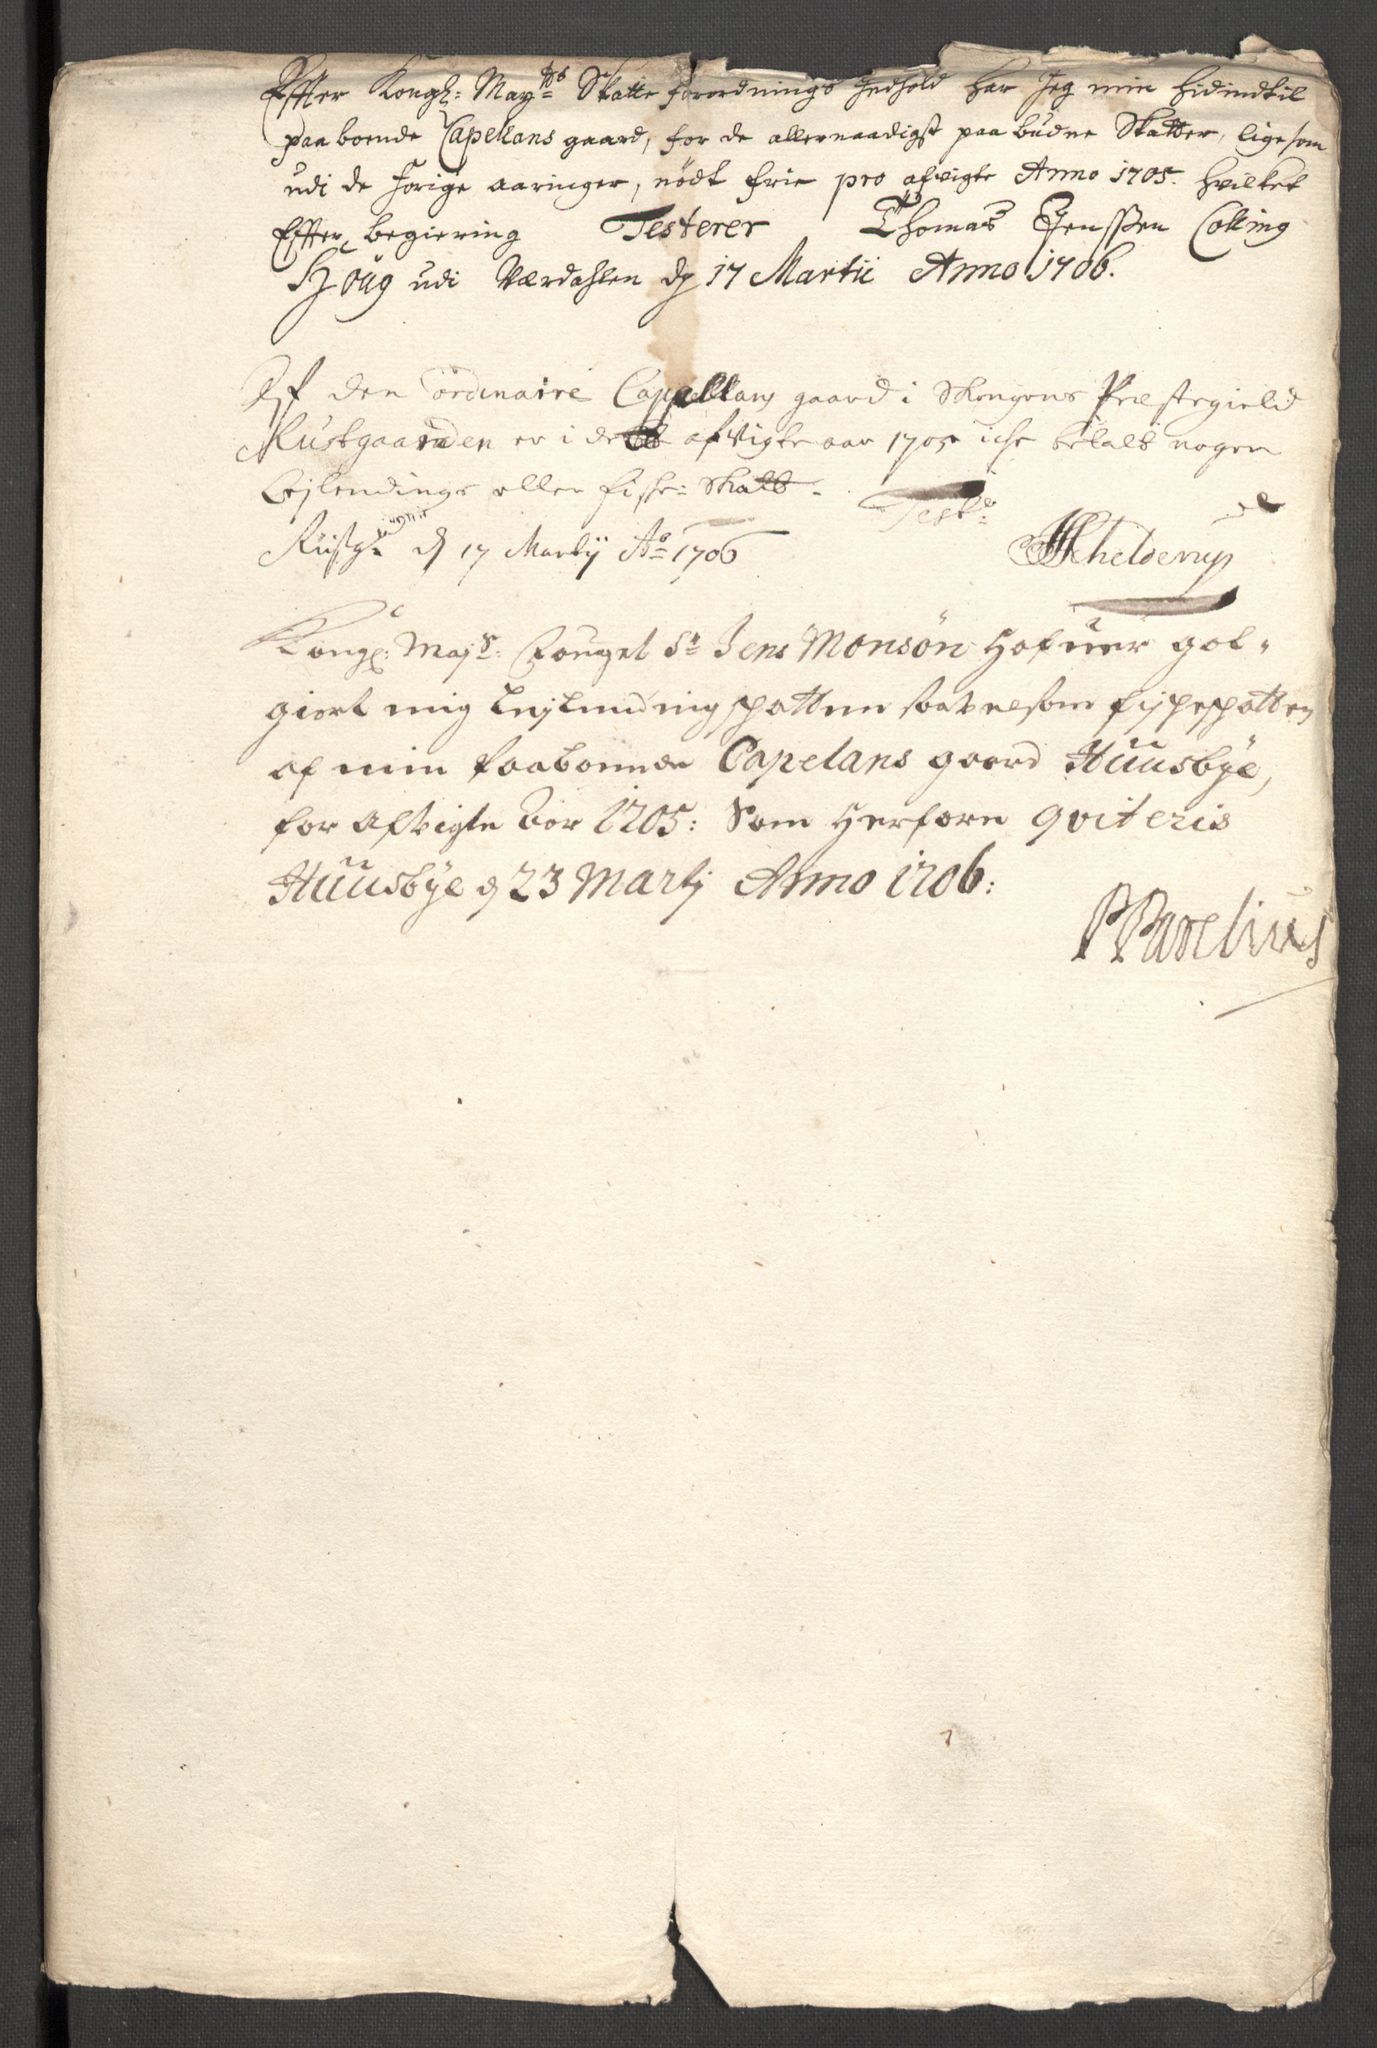 Effter Kongl: May:ts Skatte forordnings Indhold har Jeg min hidindtil
paaboende Capellans gaard, for de allernaadigst paabudne Skatter, ligesom
udi de forige aaringer, nödt frie pro afvigte Anno 1705. hvilket
Effter begiering Testerer Thomas Jenssen Colling
Houg udi Værdahlen d 17 Martii Anno 1706.
Af den ordinaire Capellans gaard i Skongens Præstegield
Rustgaarden er i dette afvigte aar 1705 iche betalt nogen
Lejlendings eller fiske: Skatt.
Test:
Rustg: d 17 Martij Ao 1706
Schielderup
Kongl: Mayts: Fouget Sr Jens Monsön Hafuer got-
giort mig Lejlendingschatten saavelsom fischeschatten
af min paaboende Capelans gaard Huusbÿe,
for afvigte Aar 1705: Som Herfore qviteris
Huusbÿe d 23 Martj Anno 1706:
PParelius